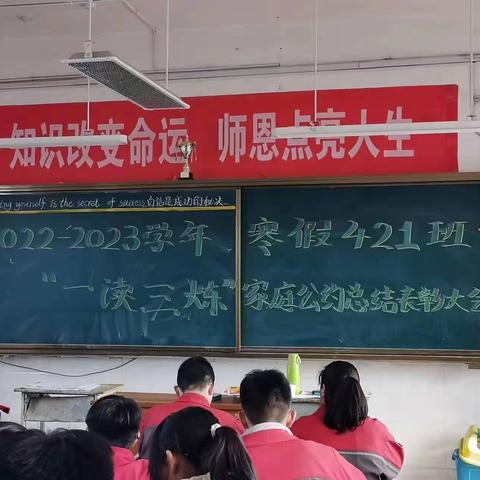 知识改变命运 师恩点亮人生
ing yourself is the secret of success自信是成功的秘诀
2022-2023学年 寒假421班
“一读三炼”家庭公约总结表彰大会